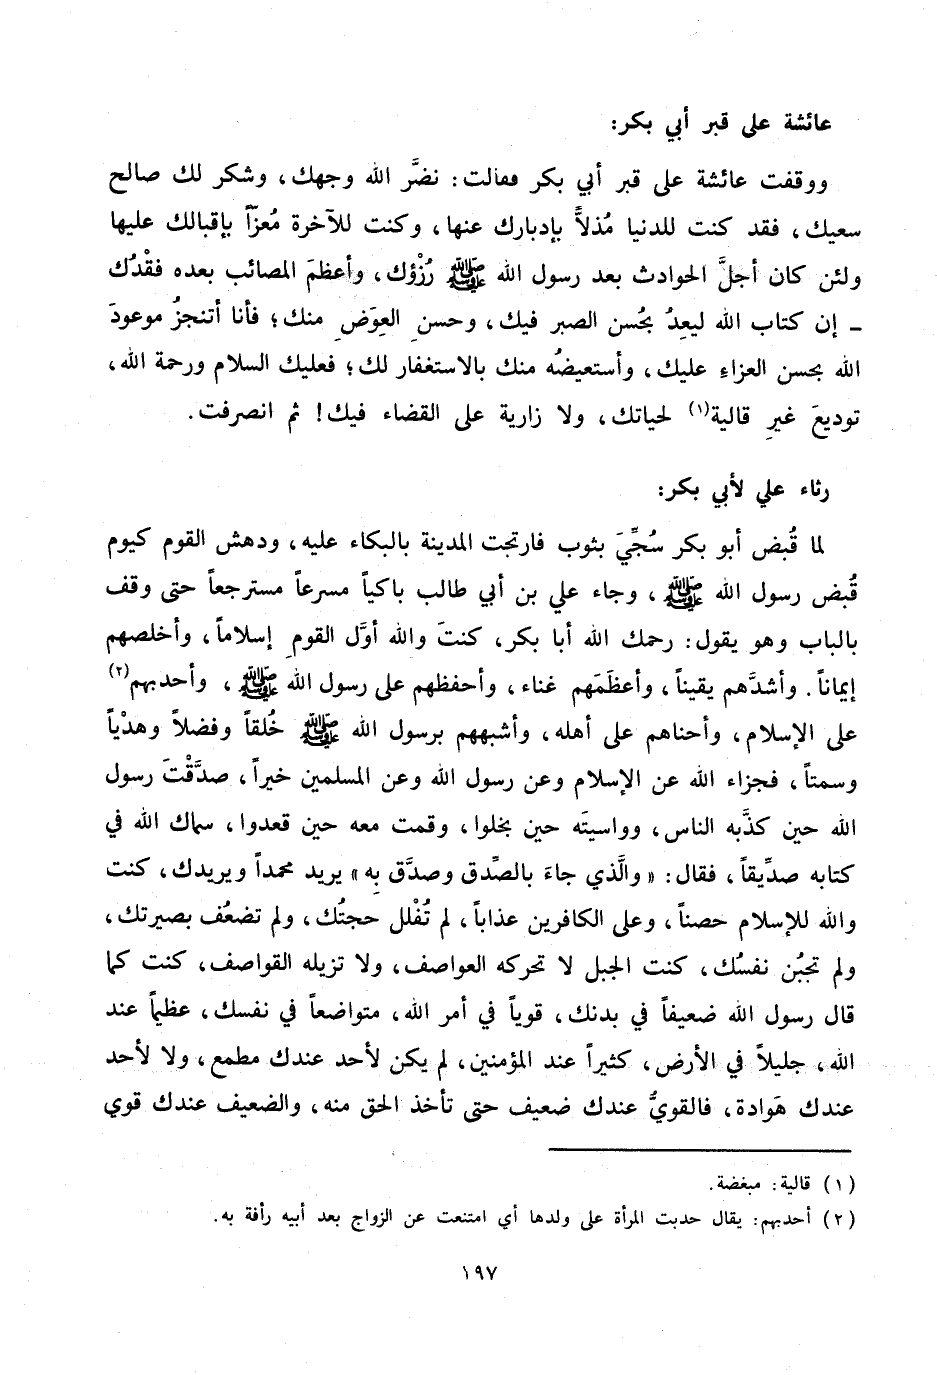 عائشة على قبر أبي بكر:
ووقفت عائشة على قبر أبي بكر فقالت: نضَّر الله وجهك، وشكر لك صالح
سعيك، فقد كنت للدنيا مُذلاًّ بإدبارك عنها، وكنت للآخرة مُعزّاً بإقبالك عليها
ولئن كان أجلَّ الحوادث بعد رسول الله ﷺ رُزْؤك، وأعظمَ المصائب بعده فقْدُك
ـ إن كتاب الله ليعِدُ بحُسن الصبر فيك، وحسنِ العِوَضِ منك؛ فأنا أتنجزُ موعودَ
الله بحسن العزاءِ عليك، وأستعيضُه منك بالاستغفار لك؛ فعليك السلام ورحمة الله،
توديعَ غيرِ قالية(١) لحياتك، ولا زارية على القضاء فيك! ثم انصرفت.
رثاء علي لأبي بكر:
لما قُبض أبو بكر سُجِّيَ بثوب فارتجت المدينة بالبكاء عليه، ودهش القوم كيوم
قُبض رسول الله ﷺ، وجاء علي بن أبي طالب باكياً مسرعاً مسترجعاً حتى وقف
بالباب وهو يقول: رحمك الله أبا بكر، كنتَ والله أوَّل القومِ إسلاماً، وأخلصهم
إيماناً. وأشدَّهم يقيناً، وأعظَمَهم غناء، وأحفظهم على رسول الله ﷺ، وأحدبهم(٢)
على الإسلام، وأحناهم على أهله، وأشبههم برسول الله ﷺ خُلقاً وفضلاً وهدْياً
وسمتاً، فجزاء الله عن الإسلام وعن رسول الله وعن المسلمين خيراً، صدَّقْتَ رسول
الله حين كذَّبه الناس، وواسيتَه حين بخلوا، وقمت معه حين قعدوا، سماك الله في
كتابه صدِّيقاً، فقال: «والَّذي جاءَ بالصِّدق وصدَّق بِه» يريد محمداً ويريدك، كنت
والله للإسلام حصناً، وعلى الكافرين عذاباً، لم تُفْلل حجتُك، ولم تضعُف بصيرتك،
ولم تجبُن نفسُك، كنت الجبل لا تحركه العواصف، ولا تزيله القواصف، كنت كما
قال رسول الله ضعيفاً في بدنك، قوياً في أمر الله، متواضعاً في نفسك، عظيماً عند
الله، جليلاً في الأرض، كثيراً عند المؤمنين، لم يكن لأحد عندك مطمع، ولا لأحد
عندك هَوادة، فالقويُّ عندك ضعيف حتى تأخذ الحق منه، والضعيف عندك قوي
(١) قالية: مبغضة.
(٢) أحدبهم: يقال حدبت المرأة على ولدها أي امتنعت عن الزواج بعد أبيه رأفة به.
١٩٧